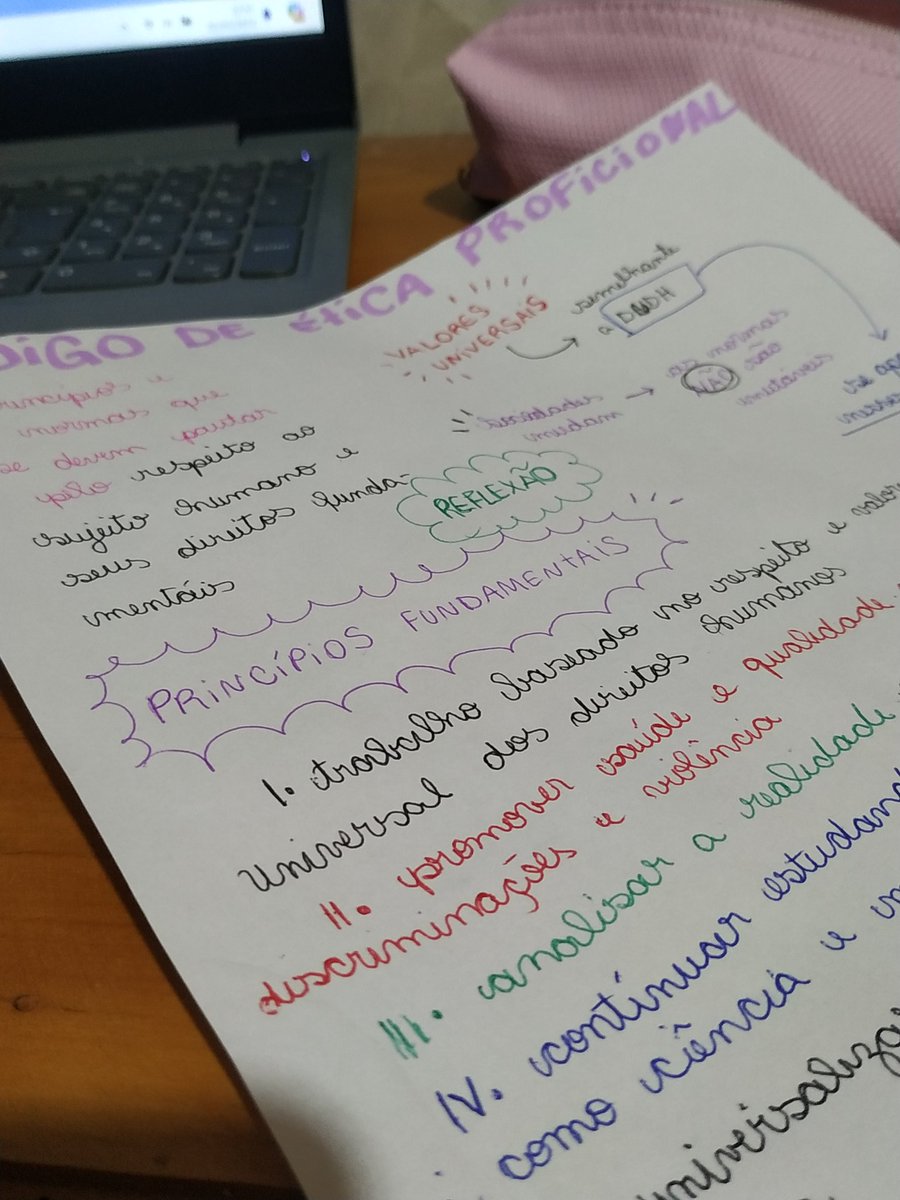 DIGO DE ÉTICA PROFICIONAL
princípios e
normas que
se devem pautar
pelo respeito ao
sujeito humano e
seus direitos funda-
mentáis
VALORES
UNIVERSAIS
semelhante
a DUDH
sociedades
mudam
as normas
NÃO são
imutáveis
REFLEXÃO
PRINCÍPIOS FUNDAMENTAIS
I. trabalho baseado no respeito e valor
universal dos direitos humanos
II. promover saúde e qualidade
discriminações e violência
III. analisar a realidade
IV. continuar estudan
como ciência e
universaliza